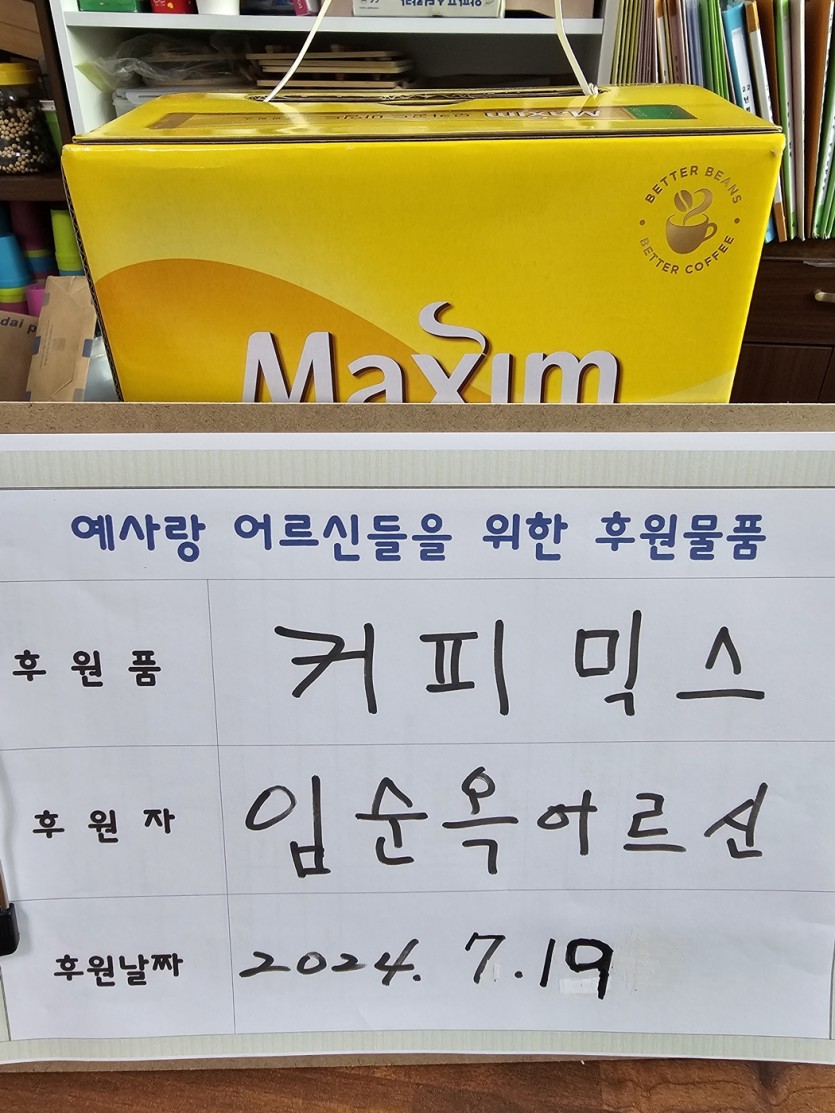 Maxim
BETTER BEANS
BETTER COFFEE
Maxim
예사랑 어르신들을 위한 후원물품
후원품 커피믹스
후원자 임순옥어르신
후원날짜 2024. 7.19